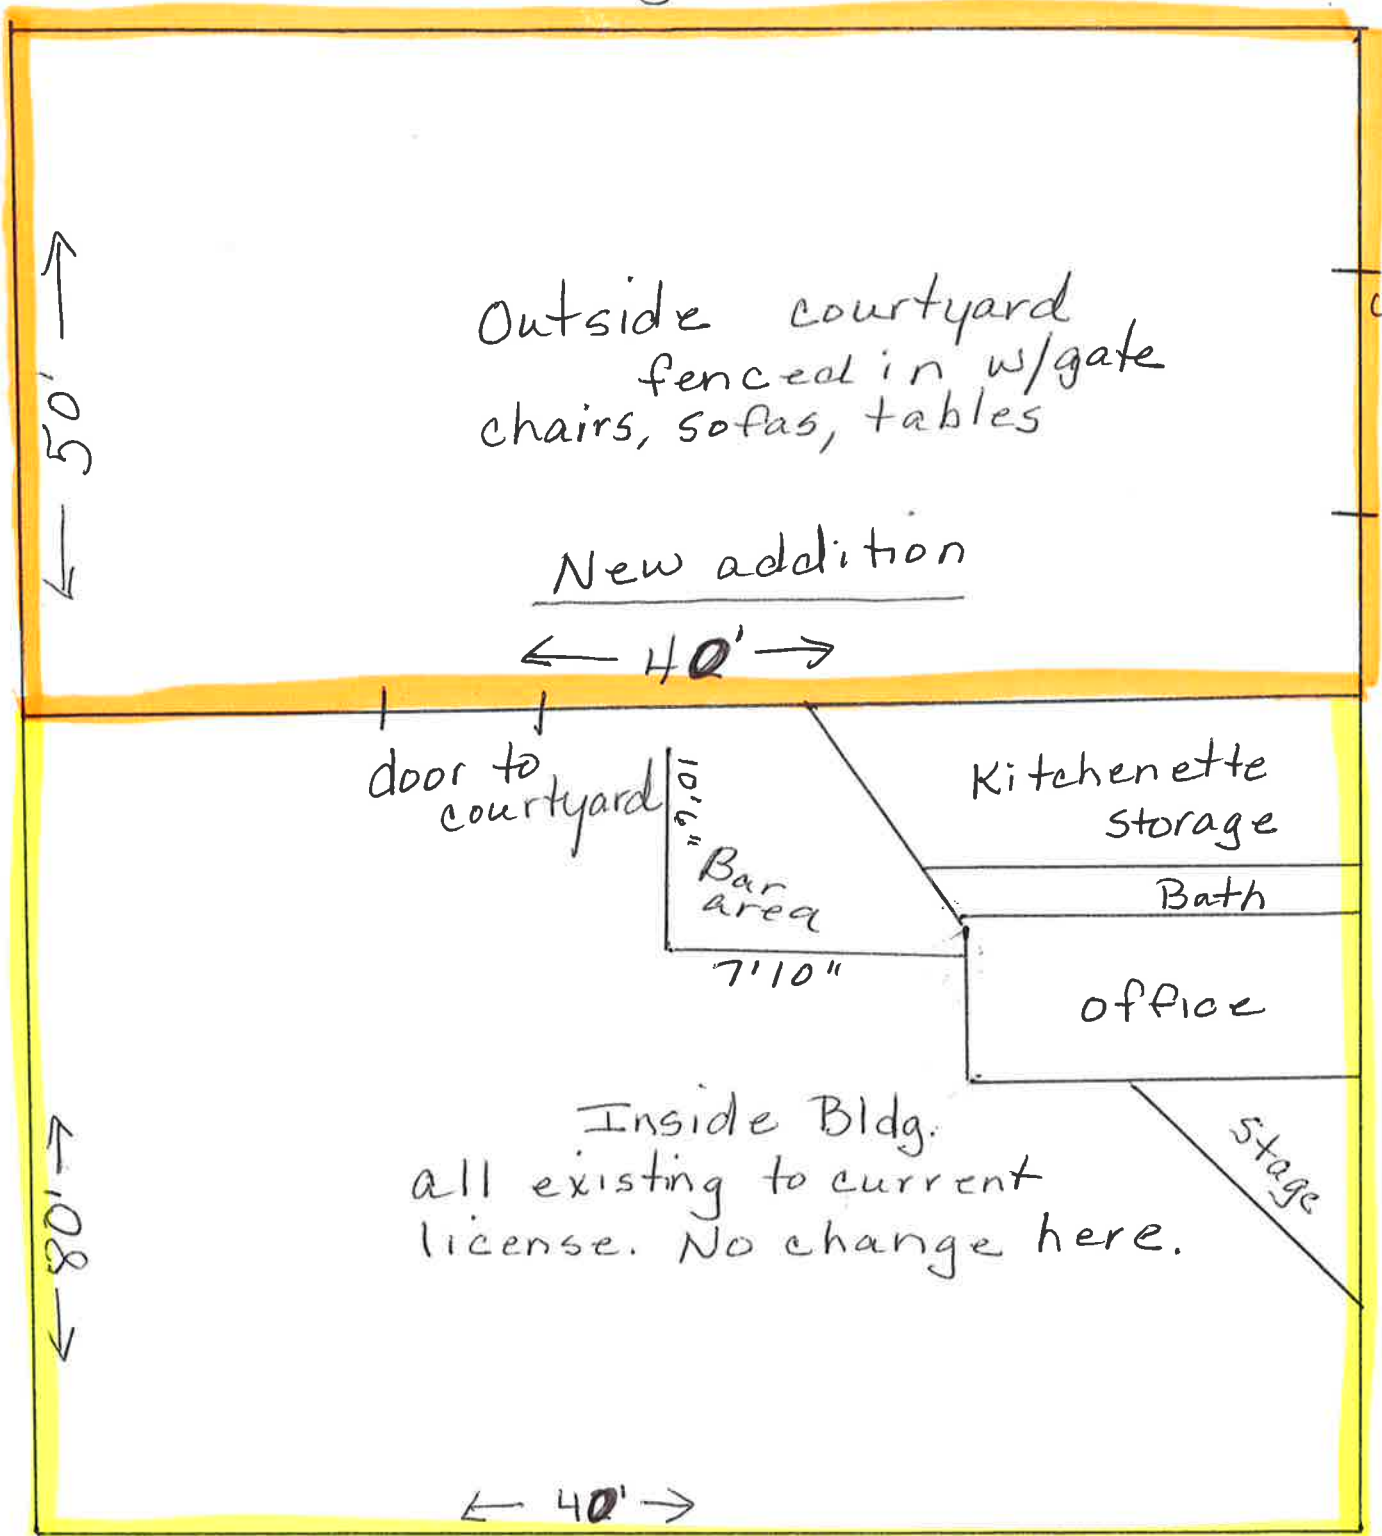 50'
Outside courtyard
fenced in w/gate
chairs, sofas, tables
New addition
40'
door to
courtyard
10'6"
Bar
area
7'10"
Kitchenette
storage
Bath
office
Stage
Inside Bldg.
all existing to current
license. No change here.
80'
40'